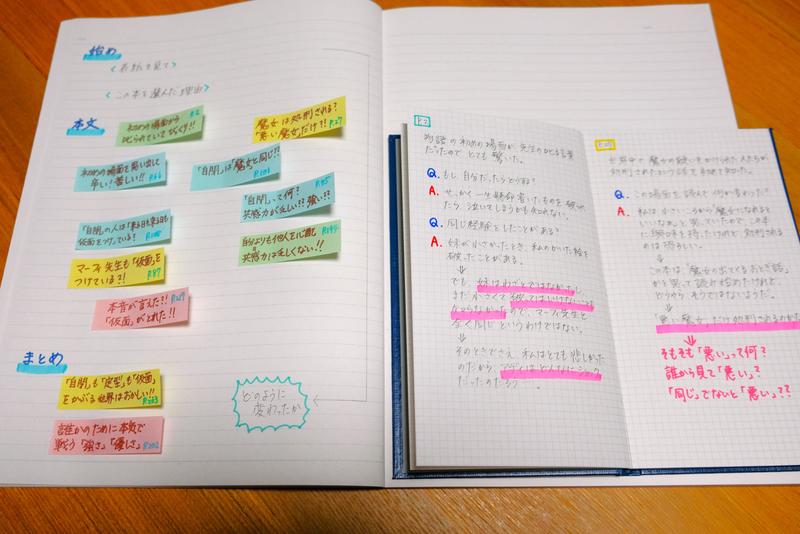 始め
<表紙を見て>
<この本を選んだ理由>
本文
初めの場面から P.2
叱られていてびっくり!!
魔女は処刑される?
「悪い魔女」だけ?! P.27
初めの場面を思い出して
辛い!苦しい!! P.66
「自閉」は「魔女と同じ」?
「自閉」って何? P.95
共感力が乏しい?? 強い??
「自閉」の人は「来る日も来る日も
仮面をつけている?
自分よりも他人を心配
共感力は乏しくない!!
マーフィ先生も「仮面」を
つけている?! P.87
本音が言えた!!
「仮面」がとれた!!
まとめ
「自閉」も「定型」も「仮面」
をかぶる世界はおかしい!! P.203
誰かのために本気で
戦う「強さ」「優しさ」 P.202
どのように
変わったか
P.2
物語の初めの場面が、先生の叱る言葉
だったので とても驚いた。
Q. もし、自分だったらどうする?
A. せっかく一生懸命書いたものを破られ
たら、泣いてしまうかも知れない。
Q. 同じ経験をしたことがある?
A. 妹が小さかったとき、私のかいた絵を
破ったことがある。
↓
でも、妹はわざとではなかったし、
まだ小さくて破ってはいけないことも
分からなかったので、マーフィ先生と
全く同じというわけではない。
↓
そのときでさえ、私はとても悲しかった
のだから、アディはどんなにショック
だったのだろう。
世界中で魔女の疑いをかけられた人たちが
処刑されたという話を初めて知った。
Q. この場面を読んで何が変わった?
A. 私は小さいころから「魔女になれると
いいなぁ」と思っていたので、この本
に興味を持ったけれど、処刑される
のは恐ろしい。
↓
この本は、「魔女の出てくるおとぎ話」
かと思って読み始めたけれど、
どうやら そうではないようだ。
「悪い魔女」だけ処刑されるのか
↓
そもそも「悪い」って何?
誰から見て「悪い」?
「同じ」でないと「悪い」??